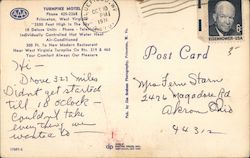 TURNPIKE MOTEL
Phone 425-2268
Princeton, West Virginia
"2500 Feet High In The Sky"
18 Deluxe Units - Phone - Television
Individually Controlled Hot Water Heat
Air-Conditioned
200 Ft. To New Modern Restaurant
Near West Virginia Turnpike On Rts. 219 & 460
Your Comfort Always Our Pleasure
AAA
OCT 10
PM
1971
EISENHOWER·USA
Post Card
Hi -
Drove 321 miles
Didn't get started
till 10 o'clock -
Couldn't take
everything we
wanted to
Mrs. Fern Starn
2476 Mogadore Rd
Akron Ohio
44312
dp